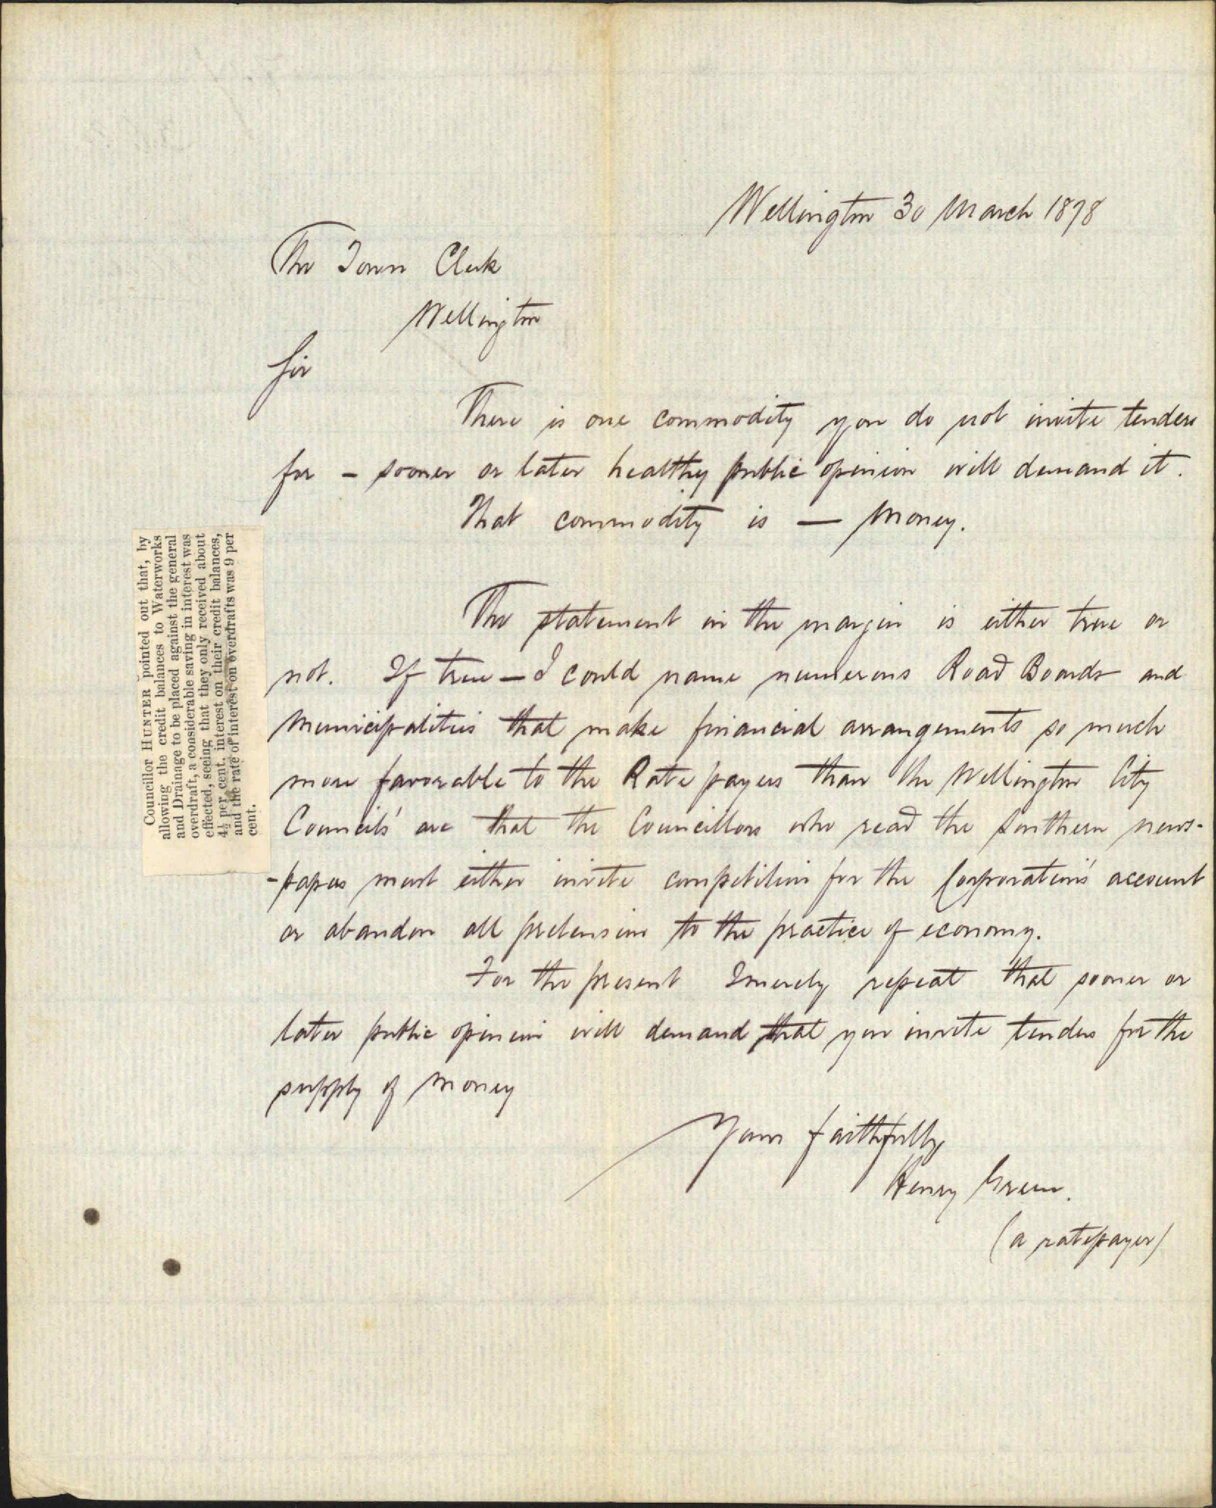 Wellington 30 March 1878
The Town Clerk
Wellington
Sir
There is one commodity you do not invite tenders
for – sooner or later healthy public opinion will demand it.
That commodity is — Money.
Councillor HUNTER pointed out that, by
allowing the credit balances to Waterworks
and Drainage to be placed against the general
overdraft, a considerable saving in interest was
effected, seeing that they only received about
4½ per cent. interest on their credit balances,
and the rate of interest on overdrafts was 9 per
cent.
The statement in the margin is either true or
not. If true – I could name numerous Road Boards and
Municipalities that make financial arrangements so much
more favorable to the Rate payers than the Wellington City
Councils' are that the Councillors who read the Southern news-
-papers must either invite competition for the Corporation's account
or abandon all pretension to the practice of economy.
For the present I merely repeat that sooner or
later public opinion will demand that you invite tenders for the
supply of money
Yours faithfully
Henry Green.
(a ratepayer)